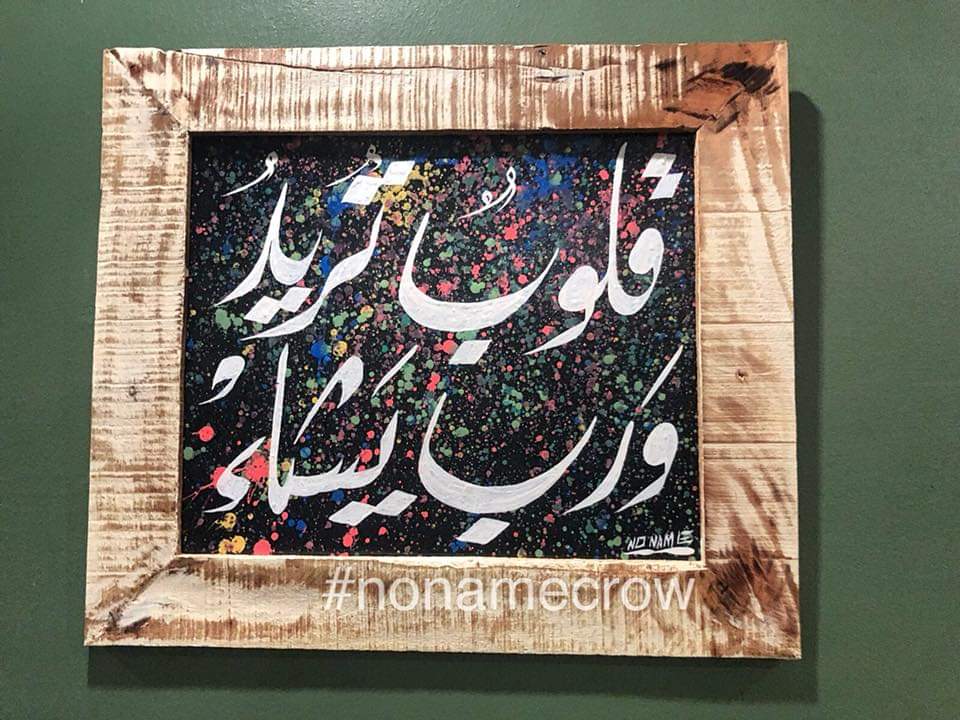 قلوبُ تُريدُ
وَرب يَشاءُ
NO NAME
#nonamecrow